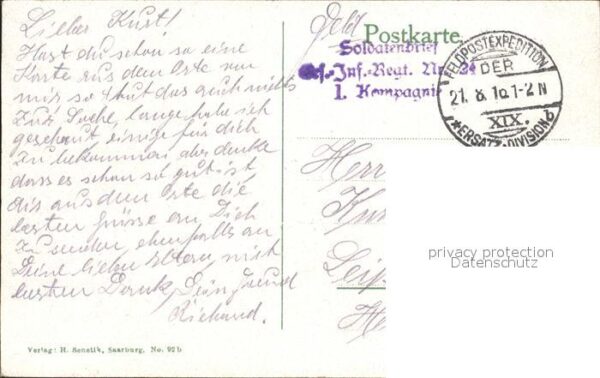 Lieber Kurt!
Hast du schon so eine
Karte aus dem Orte von
mir so thut das auch nichts
zur Sache, lange habe ich
geschaut einige für dich
zu bekommen aber denke
dass es schon so gut ist,
als aus dem Orte die
besten Grüsse an Dich
zu senden, ebenfalls an
Deine lieben Eltern, mit
besten Dank, Dein Freund
Richard.
Verlag: H. Senstik, Saarburg. No. 92 b
Feld
Postkarte.
Soldatenbrief
Inf.-Regt. Nr. 24
1. Kompagnie
FELDPOSTEXPEDITION
DER
21.8.16.1-2N
XIX.
*ERSATZ-DIVISION
Herr
Kur
Leip
He
privacy protection
Datenschutz